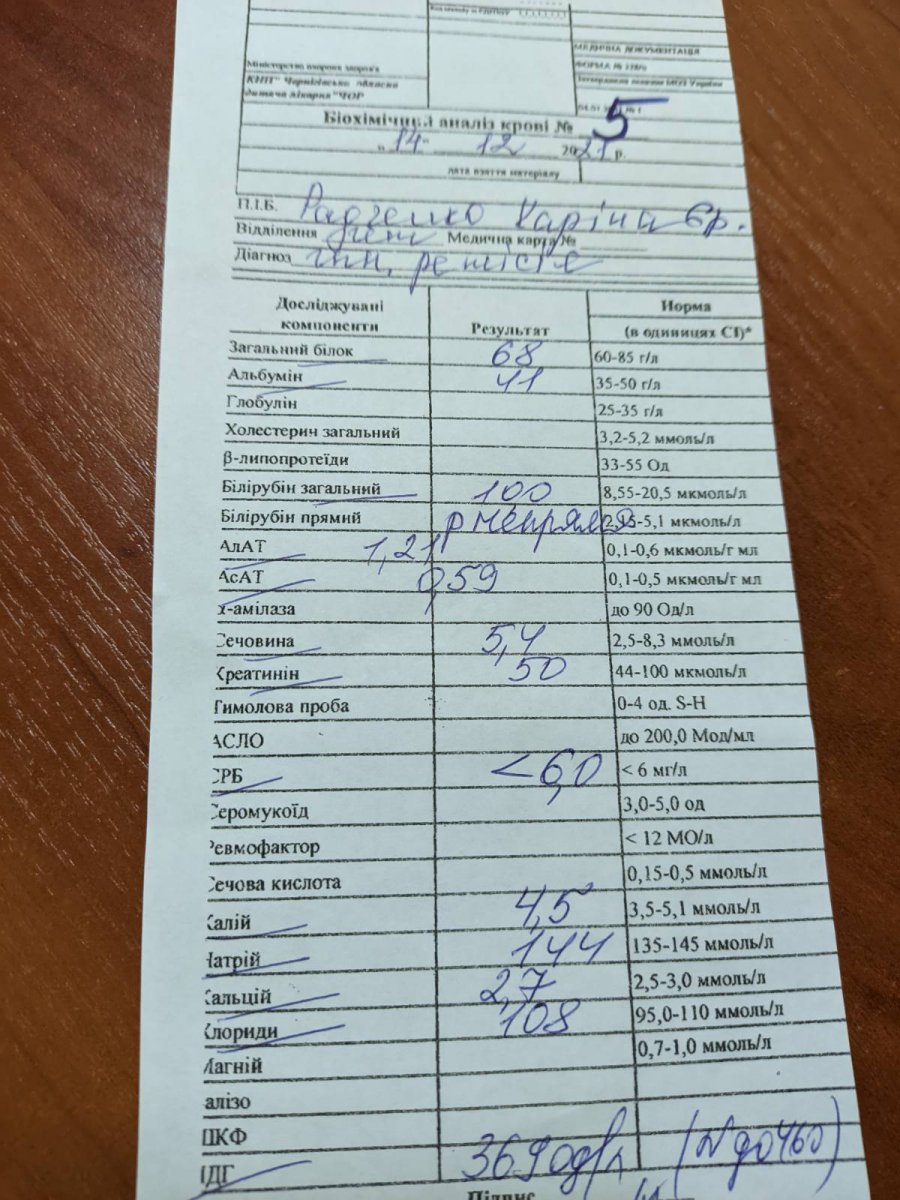 Код закладу за ЄДРПОУ
МЕДИЧНА ДОКУМЕНТАЦІЯ
Міністерство охорони здоров'я
ФОРМА № 228/о
КНП" Чернігівська обласна
Затверджена наказом МОЗ України
дитяча лікарня "ЧОР
04.01 № 1
Біохімічний аналіз крові № 5
" 14 " 12 2021 р.
дата взяття матеріалу
П.І.Б. Радченко Каріна 6р.
Відділення Медична карта №
Діагноз ремісія
Досліджувані компоненти Результат Норма (в одиницях СІ)*
Загальний білок 68 60-85 г/л
Альбумін 41 35-50 г/л
Глобулін 25-35 г/л
Холестерин загальний 3,2-5,2 ммоль/л
β-липопротеїди 33-55 Од
Білірубін загальний 10,0 8,55-20,5 мкмоль/л
Білірубін прямий р непряма 2,15-5,1 мкмоль/л
АлАТ 1,21 0,1-0,6 мкмоль/г мл
АсАТ 0,59 0,1-0,5 мкмоль/г мл
α-амілаза до 90 Од/л
Сечовина 5,4 2,5-8,3 ммоль/л
Креатинін 50 44-100 мкмоль/л
Тимолова проба 0-4 од. S-H
АСЛО до 200,0 Мод/мл
СРБ <6,0 < 6 мг/л
Серомукоїд 3,0-5,0 од
Ревмофактор < 12 МО/л
Сечова кислота 0,15-0,5 ммоль/л
Калій 4,5 3,5-5,1 ммоль/л
Натрій 144 135-145 ммоль/л
Кальцій 2,7 2,5-3,0 ммоль/л
Хлориди 108 95,0-110 ммоль/л
Магній 0,7-1,0 ммоль/л
алізо
ШКФ
ЛДГ 369 од/л (N до 460)
Підпис